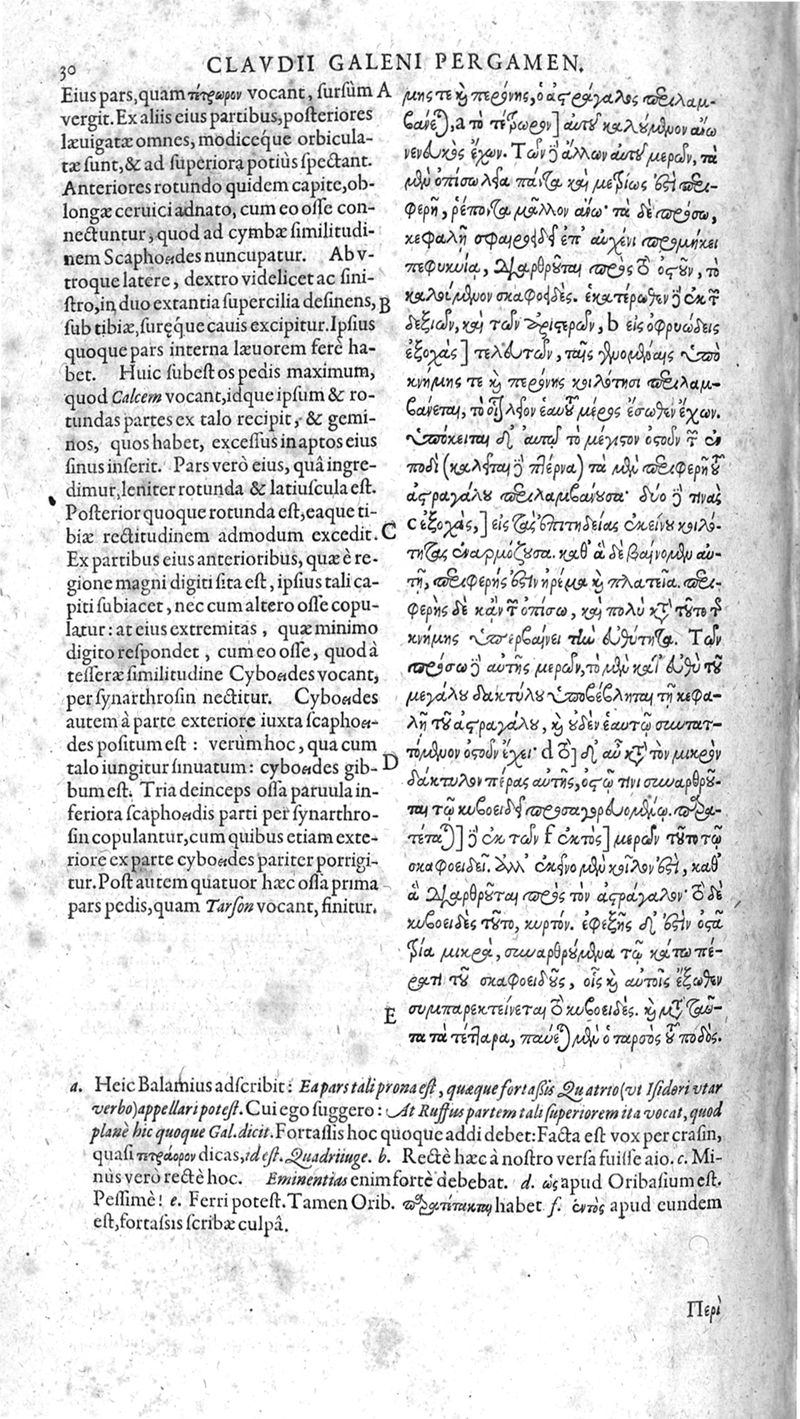 30 CLAVDII GALENI PERGAMEN.
Eius pars, quam τέτρωρον vocant, sursùm A
vergit. Ex aliis eius partibus, posteriores
læuigatæ omnes, modicéque orbicula-
tæ sunt, & ad superiora potiùs spectant.
Anteriores rotundo quidem capite, ob-
longæ ceruici adnato, cum eo osse con-
nectuntur, quod ad cymbæ similitudi-
nem Scaphoειdes nuncupatur. Ab v-
troque latere, dextro videlicet ac sini-
stro, in duo extantia supercilia desinens, B
sub tibiæ, suręque cauis excipitur. Ipsius
quoque pars interna læuorem ferè ha-
bet. Huic subest os pedis maximum,
quod Calcem vocant, idque ipsum & ro-
tundas partes ex talo recipit, & gemi-
nos, quos habet, excessus in aptos eius
sinus inserit. Pars verò eius, quâ ingre-
dimur, leniter rotunda & latiuscula est.
Posterior quoque rotunda est, eaque ti-
biæ rectitudinem admodum excedit. C
Ex partibus eius anterioribus, quæ è re-
gione magni digiti sita est, ipsius tali ca-
piti subiacet, nec cum altero osse copu-
latur: at eius extremitas, quæ minimo
digito respondet, cum eo osse, quod à
tesseræ similitudine Cyboειdes vocant,
per synarthrosin nectitur. Cyboειdes
autem à parte exteriore iuxta scaphoει-
des positum est: verùm hoc, qua cum
talo iungitur sinuatum: cyboειdes gib- D
bum est. Tria deinceps ossa paruula in-
feriora scaphoειdis parti per synarthro-
sin copulantur, cum quibus etiam exte-
riore ex parte cyboειdes pariter porrigi-
tur. Post autem quatuor hæc ossa prima
pars pedis, quam Tarson vocant, finitur.
μης τε καὶ περόνης, ὁ ἀστράγαλος περιλαμ-
βάνεται, a τὸ τέτρωρον] αὐτοῦ καλούμενον ἄνω
νενευκὸς ἔχων. Τῶν δὲ ἄλλων αὐτοῦ μερῶν, τὰ
μὲν ὀπίσω λεῖα πάντα καὶ μετρίως ἐστὶ περι-
φερῆ, ῥέποντα μᾶλλον ἄνω· τὰ δὲ πρόσω,
κεφαλῇ σφαιροειδεῖ ἐπ' αὐχένι προμήκει
πεφυκυῖα, διαρθροῦται πρὸς τὸ ὀστοῦν, τὸ
καλούμενον σκαφοειδές. ἑκατέρωθεν δὲ ἐκ τῶν
δεξιῶν, καὶ τῶν ἀριστερῶν, b εἰς ὀφρυώδεις
ἐξοχὰς] τελευτῶν, ταῖς γενομέναις ὑπὸ
κνήμης τε καὶ περόνης κοιλότησι περιλαμ-
βάνεται, τὸ λεῖον ἑαυτοῦ μέρος ἔσωθεν ἔχων.
ὑπόκειται δ' αὐτῷ τὸ μέγιστον ὀστοῦν τῶν ἐν
ποδὶ (καλεῖται δὲ πτέρνα) τὰ μὲν περιφερῆ τοῦ
ἀστραγάλου περιλαμβάνουσα· δύο δὲ τινας
c ἐξοχὰς,] εἰς τὰς ἐπιτηδείας ἐκείνου κοιλό-
τητας ἐναρμόζουσα. καθ' ἃ δὲ βαίνομεν αὐ-
τῇ, περιφερής ἐστιν ἠρέμα καὶ πλατεῖα. περι-
φερὴς δὲ κἀν τῷ ὀπίσω, καὶ πολὺ κατὰ τοῦτο τῆς
κνήμης ὑπερβαίνει τὴν εὐθύτητα. Τῶν
πρόσω δὲ αὐτῆς μερῶν, τὸ μὲν κατ' εὐθὺ τοῦ
μεγάλου δακτύλου ὑποβέβληται τῇ κεφα-
λῇ τοῦ ἀστραγάλου, καὶ οὐδὲν ἑαυτῷ συναπτ-
τόμενον ὀστοῦν ἔχει· d τὸ] δ' αὖ κατὰ τὸν μικρὸν
δάκτυλον πέρας αὐτῆς, ὀστῷ τινι συναρθροῦ-
ται τῷ κυβοειδεῖ προσαγορευομένῳ. παρα-
τέταται] δὲ ἐκ τῶν f ἐκτὸς] μερῶν τοῦτο τῷ
σκαφοειδεῖ. ἀλλ' ἐκεῖνο μὲν κοῖλόν ἐστι, καθ'
ἃ διαρθροῦται πρὸς τὸν ἀστράγαλον· τὸ δὲ
κυβοειδὲς τοῦτο, κυρτόν. ἐφεξῆς δ' ἐστὶν ὀστᾶ
τρία μικρὰ, συναρθρούμενα τῷ κάτω πέ-
ρατι τοῦ σκαφοειδοῦς, οἷς καὶ αὐτοῖς ἔξωθεν
E συμπαρεκτείνεται τὸ κυβοειδές. καὶ μετὰ ταῦ-
τα τὰ τέτταρα, παύεται μὲν ὁ ταρσὸς τοῦ ποδός.
a. Heic Balamius adscribit: Ea pars tali prona est, quæque fortassis Quatrio (vt Isidori vtar
verbo) appellari potest. Cui ego suggero: At Ruffus partem tali superiorem ita vocat, quod
planè hic quoque Gal. dicit. Fortassis hoc quoque addi debet: Facta est vox per crasin,
quasi τετράορον dicas, id est. Quadriiuge. b. Rectè hæc à nostro versa fuisse aio. c. Mi-
nus verò rectè hoc. Eminentias enim fortè debebat. d. ὡς apud Oribasium est.
Pessimè! e. Ferri potest. Tamen Orib. παρατέτακται habet f. ἐντὸς apud eundem
est, fortassis scribæ culpâ.
Περὶ